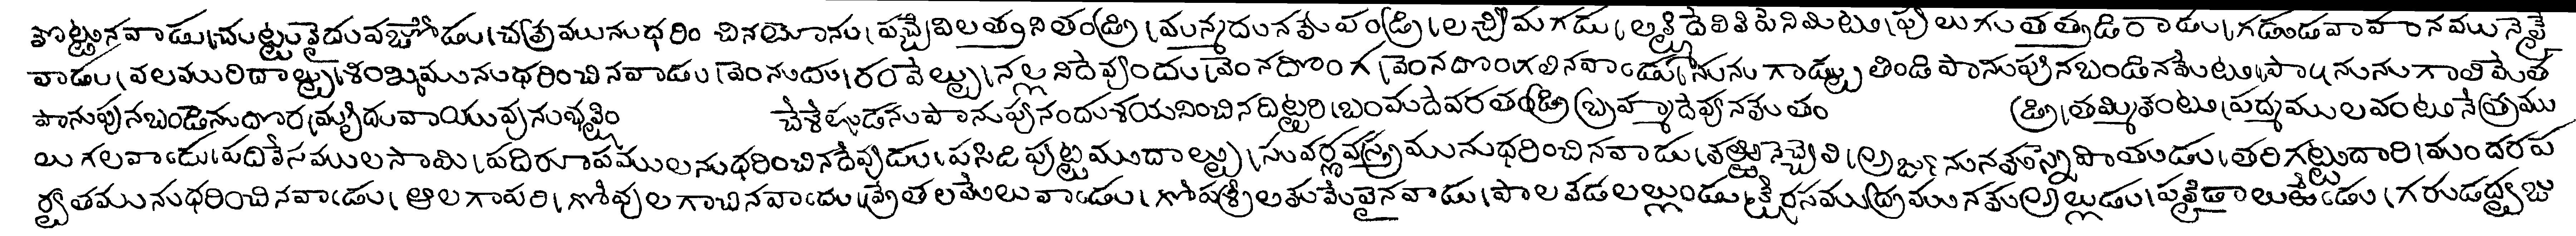 తొట్టునవాడు।చుట్టువైదువజోడు।చక్రమునుధరించినయోను। పచ్చవిలత్తునితండ్రి।మన్మదునకుపండ్రి।లచ్చిమగడు।లక్ష్మీదేవికిపెనిమిటి।పులుగుతత్తడిరాడు।గరుడవాహనమునెక్కే
వాడు।వలమురిదాల్పు।శంఖమునుధరించినవాడు।వెంనుడు।రంవేల్పు।నల్లనిదేవుందు।వెంనదొంగ।వెంనదొంగలినవాఁడు।సునుగాడ్పుతిండిపానుపునబండినమేటి।పానునుగాలిమేత
పానుపునబండెనుదొర।మ్రుదువాయువునుభక్షిం చేశేష్డునుపానుపునందుశయనించినదిట్టరి।బంమదేవరతండ్రి।బ్రహ్మాదేవునకుతం డ్రి।తమ్మికంటి।పద్మములవంటినేత్రము
లుగలవాఁడు।పదివేసములసామి।పదిరూపములనుధరించినదేవుడు।పసిడిపుట్టముదాల్పు।సువర్ణవస్త్రమునుధరించినవాడు।కఱ్ఱినెచ్చెలి।అర్జునునకుస్నేహితుడు।తరిగట్టుదారి।మందరప
ర్వతమునుధరించినవాఁడు।ఆలగాపరి।గోవులగాచినవాఁడు।వ్రేతలమేలువాఁడు।గోపస్త్రీలకుమేలైనవాడు।పాలకడలల్లుండు।క్షీరసముద్రమునకుఅల్లుడు।పక్కిడాలుఱేఁడు।గరుడధ్వజు